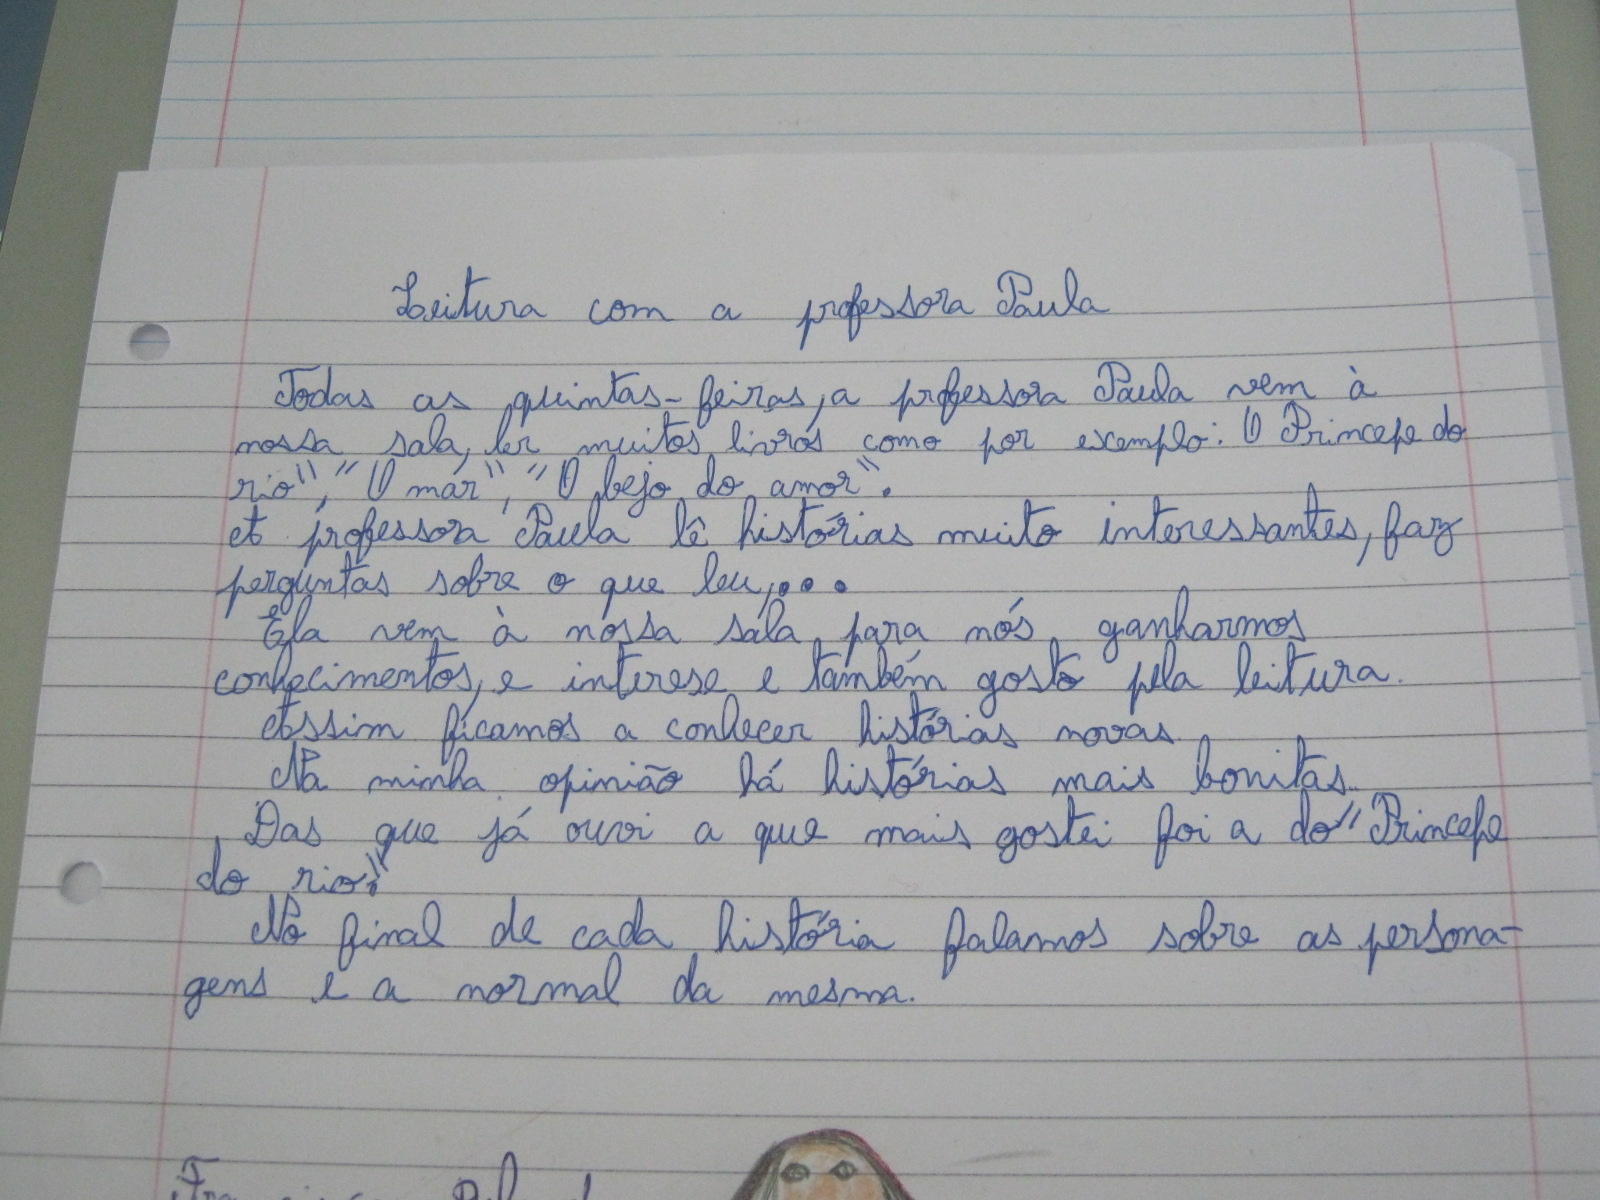 Leitura com a professora Paula
Todas as quintas-feiras, a professora Paula vem à
nossa sala, ler muitos livros como por exemplo: O Princepe do
rio", "O mar", "O bejo do amor".
A professora Paula lê histórias muito interessantes, faz
perguntas sobre o que leu,...
Ela vem à nossa sala para nós ganharmos
conhecimentos, e interese e também gosto pela leitura.
Assim ficamos a conhecer histórias novas
Na minha opinião há histórias mais bonitas.
Das que já ouvi a que mais gostei foi a do "Princepe
do rio".
No final de cada história falamos sobre as persona-
gens e a normal da mesma.